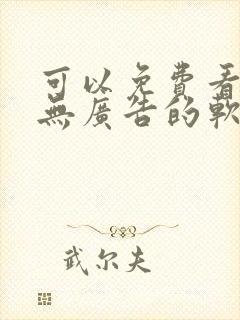 可以免費看
無廣告的軟
武尔夫